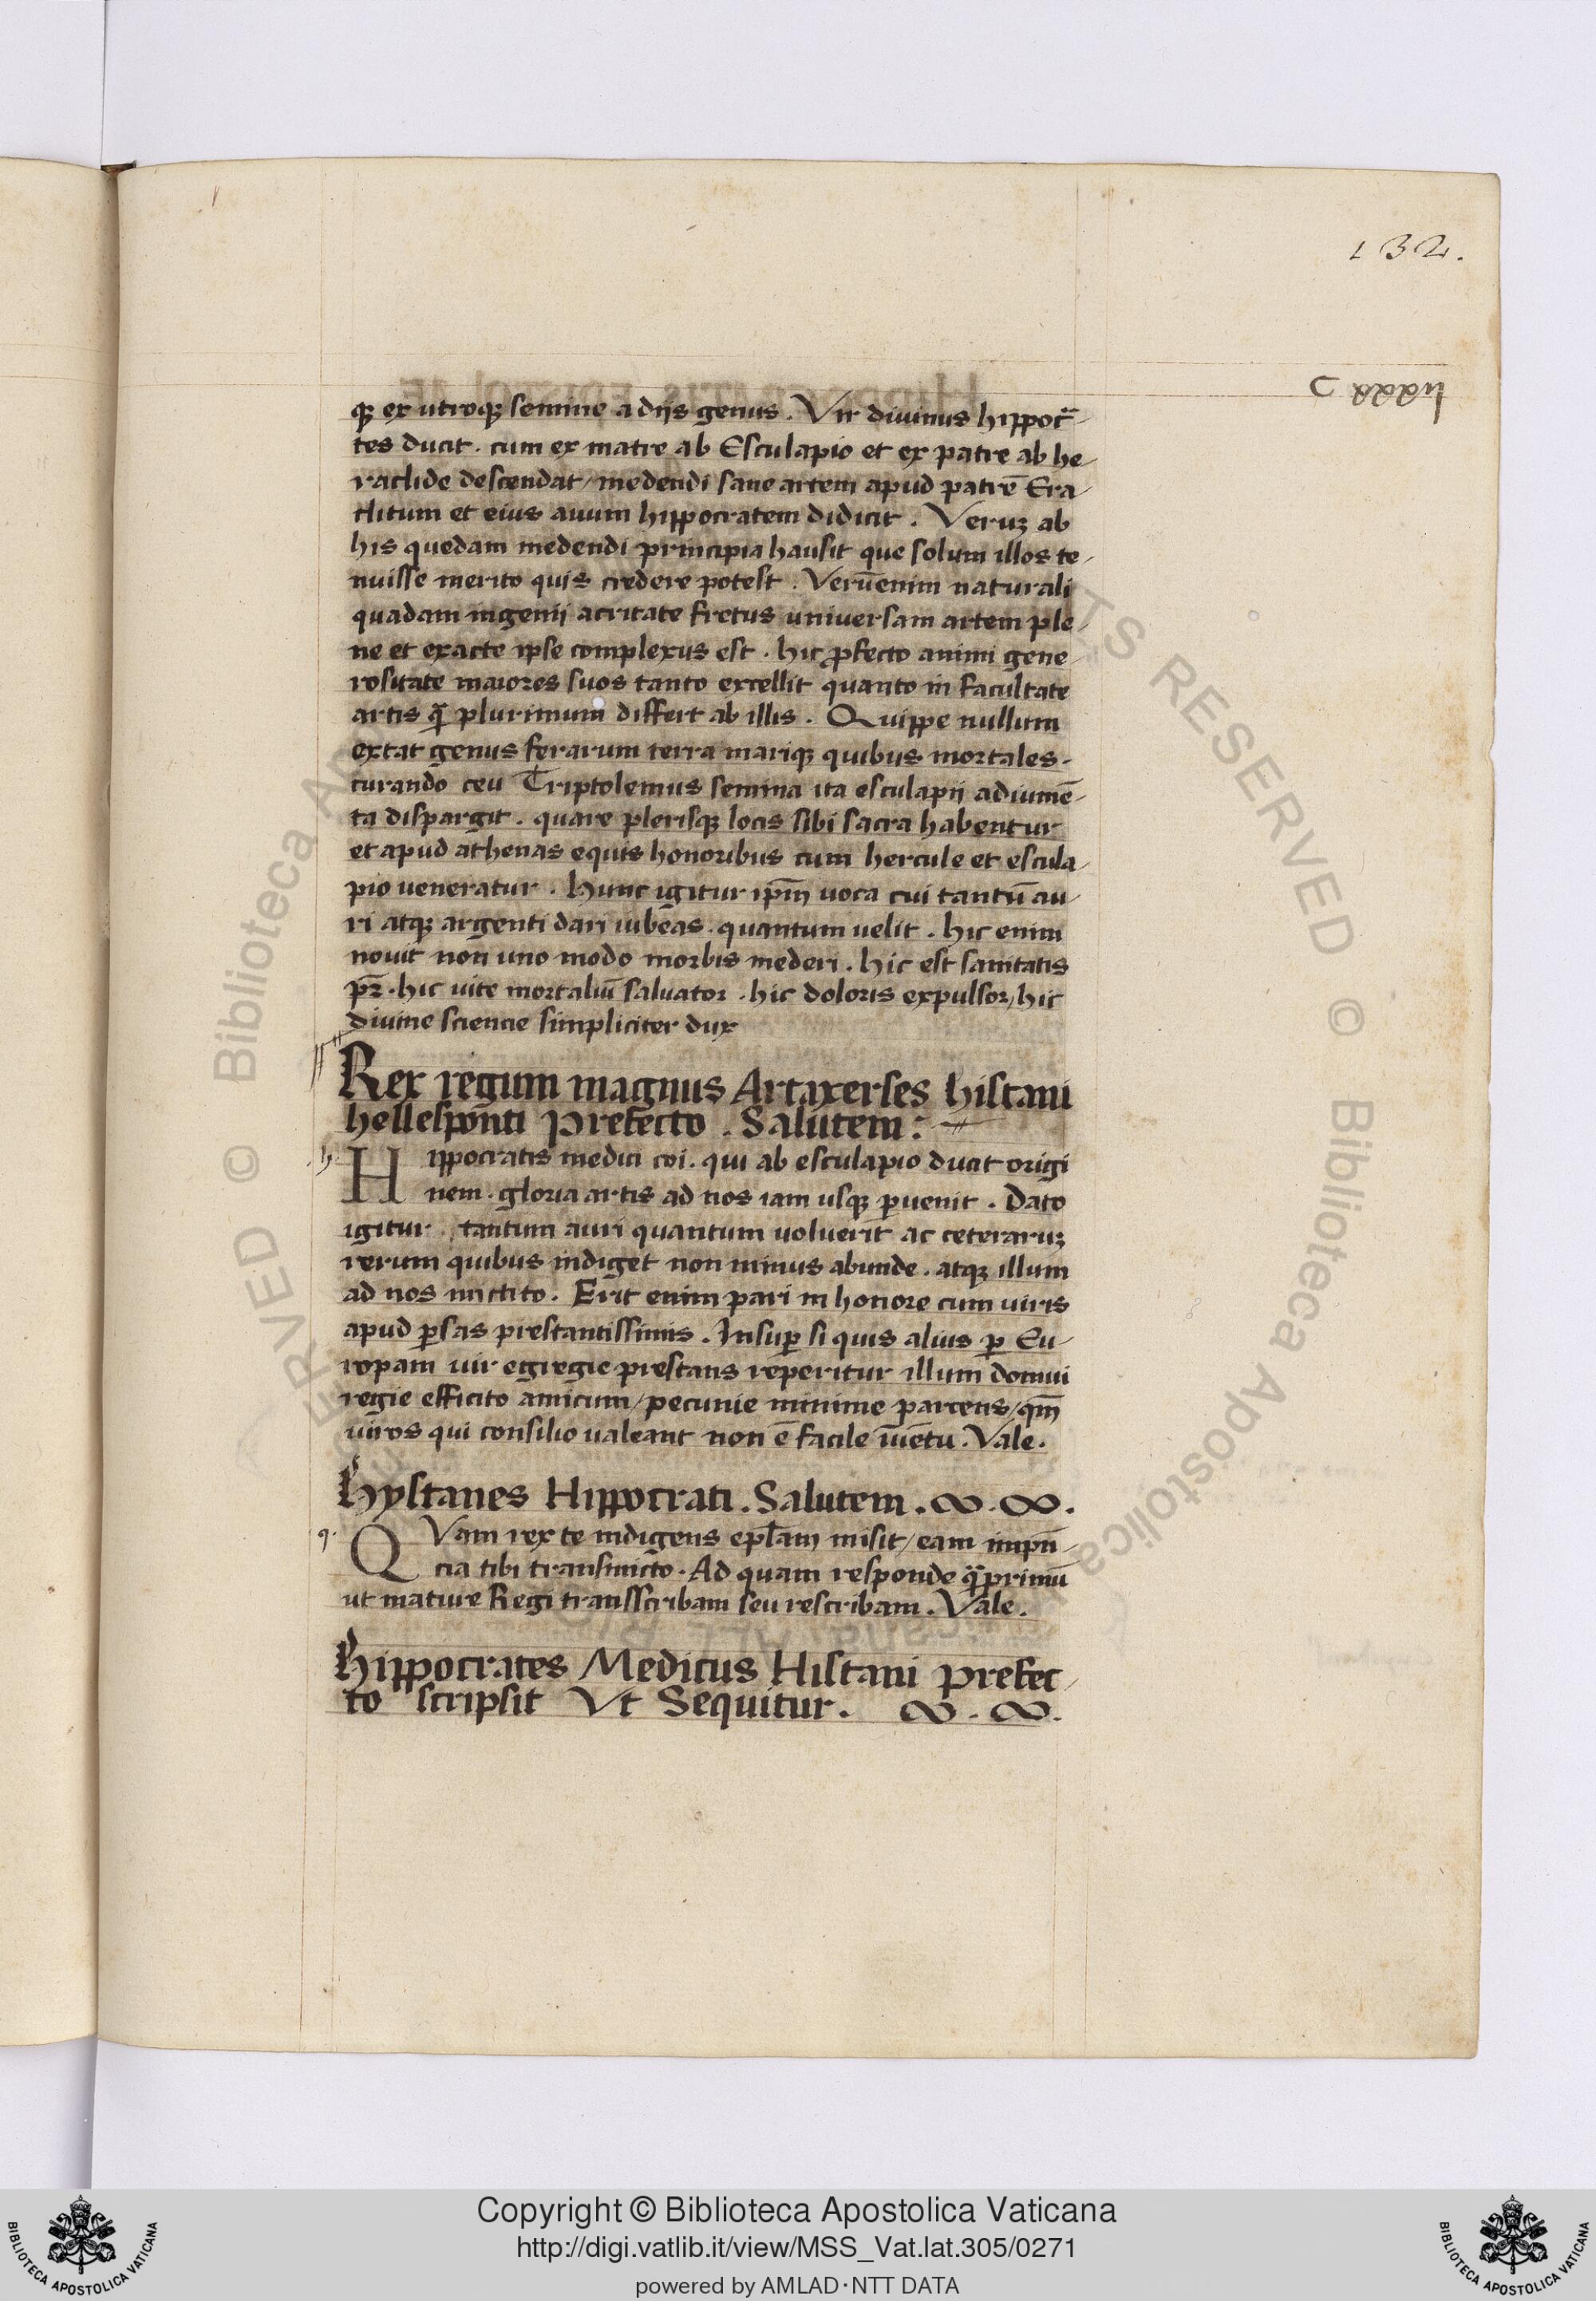 132.
qꝫ ex utroqꝫ semine a diis genus. Vir divinus hippocr̄-
tes ducit. cum ex matre ab Esculapio et ex patre ab he-
raclide descendat/ medendi sane artem apud patrē Era-
clitum et eius auum hippocratem didicit. Veruꝫ ab
his quedam medendi principia hausit que solum illos te-
nuisse merito quis credere potest. Verūenim naturali
quadam ingenii acritate fretus universam artem ple-
ne et exacte ipse complexus est. hic ꝓfecto animi gene-
rositate maiores suos tanto excellit quanto in facultate
artis q̄ plurimum differt ab illis. Quippe nullum
extat genus ferarum terra mariqꝫ quibus mortales-
curando ceu Triptolemus semina ita esculapii adiumē-
ta dispargit. quare plerisqꝫ locis sibi sacra habentur
et apud athenas equis honoribus cum hercule et escula-
pio ueneratur. hunc igitur ip̄m uoca cui tantū au-
ri atqꝫ argenti dari iubeas. quantum uelit. hic enim
novit non uno modo morbis mederi. hic est sanitatis
pr̄. hic uite mortaliū saluator. hic doloris expulsor/ hic
divine sciencie simpliciter dux
Rex regum magnus Artaxerses histani
hellesponti prefecto. Salutem:
h. Hippocratis medici coi. qui ab esculapio ducit origi
nem. gloria artis ad nos iam usqꝫ ꝑuenit. Dato
igitur. tantum auri quantum uoluerit ac ceteraruꝫ
rerum quibus indiget non minus abunde. atqꝫ illum
ad nos mictito. Erit enim pari in honore cum uiris
apud ꝑsas prestantissimis. Insuꝑ si quis alius ꝑ Eu-
ropam uir egregie prestans reperitur illum domui
regie efficito amicum/ pecunie minime parcens/ qm̄
uiros qui consilio ualeant non ē facile īuētu. Vale.
Hystanes Hippocrati. Salutem. ∞. ∞.
q. QVam rex te indigens ep̄lam misit/ eam impn̄-
cia tibi transmicto. Ad quam responde q̄primū
ut mature Regi transscribam seu rescribam. Vale.
Hippocrates Medicus Histani prefec-
to scripsit Vt Sequitur. ∞. ∞.
© Biblioteca Apostolica
Copyright © Biblioteca Apostolica Vaticana
http://digi.vatlib.it/view/MSS_Vat.lat.305/0271
powered by AMLAD·NTT DATA
BIBLIOTECA APOSTOLICA VATICANA
BIBLIOTECA APOSTOLICA VATICANA